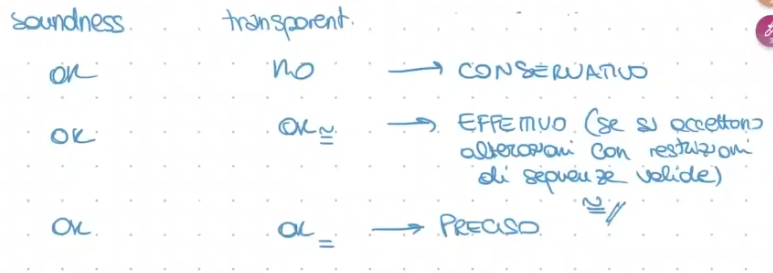 soundness transparent
OK NO → CONSERVATIVO
OK OK ≅ → EFFETTIVO (se si accettano
alterazioni con restrizioni
di sequenze valide)
≅
OK OK = → PRECISO